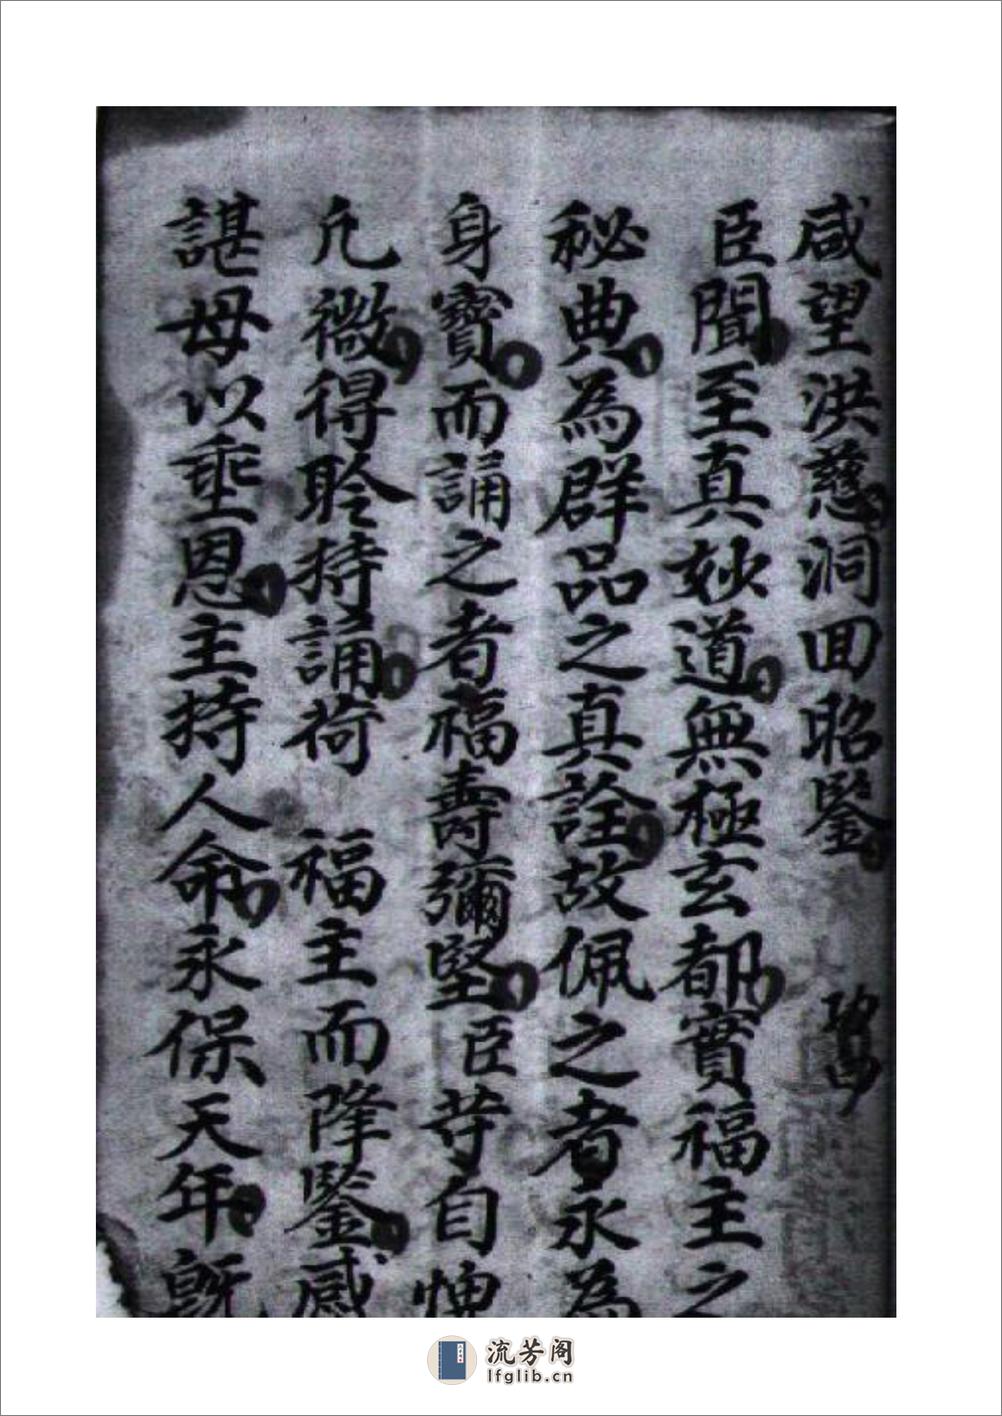 咸望洪慈洞回昭鑒
臣聞至真妙道無極玄都實福主之
秘典為群品之真詮故佩之者永為
身寶而誦之者福壽彌堅臣等自愧
凢微得聆持誦荷　福主而降鑒感
諶母以垂恩主持人命永保天年既
流芳阁
lfglib.cn